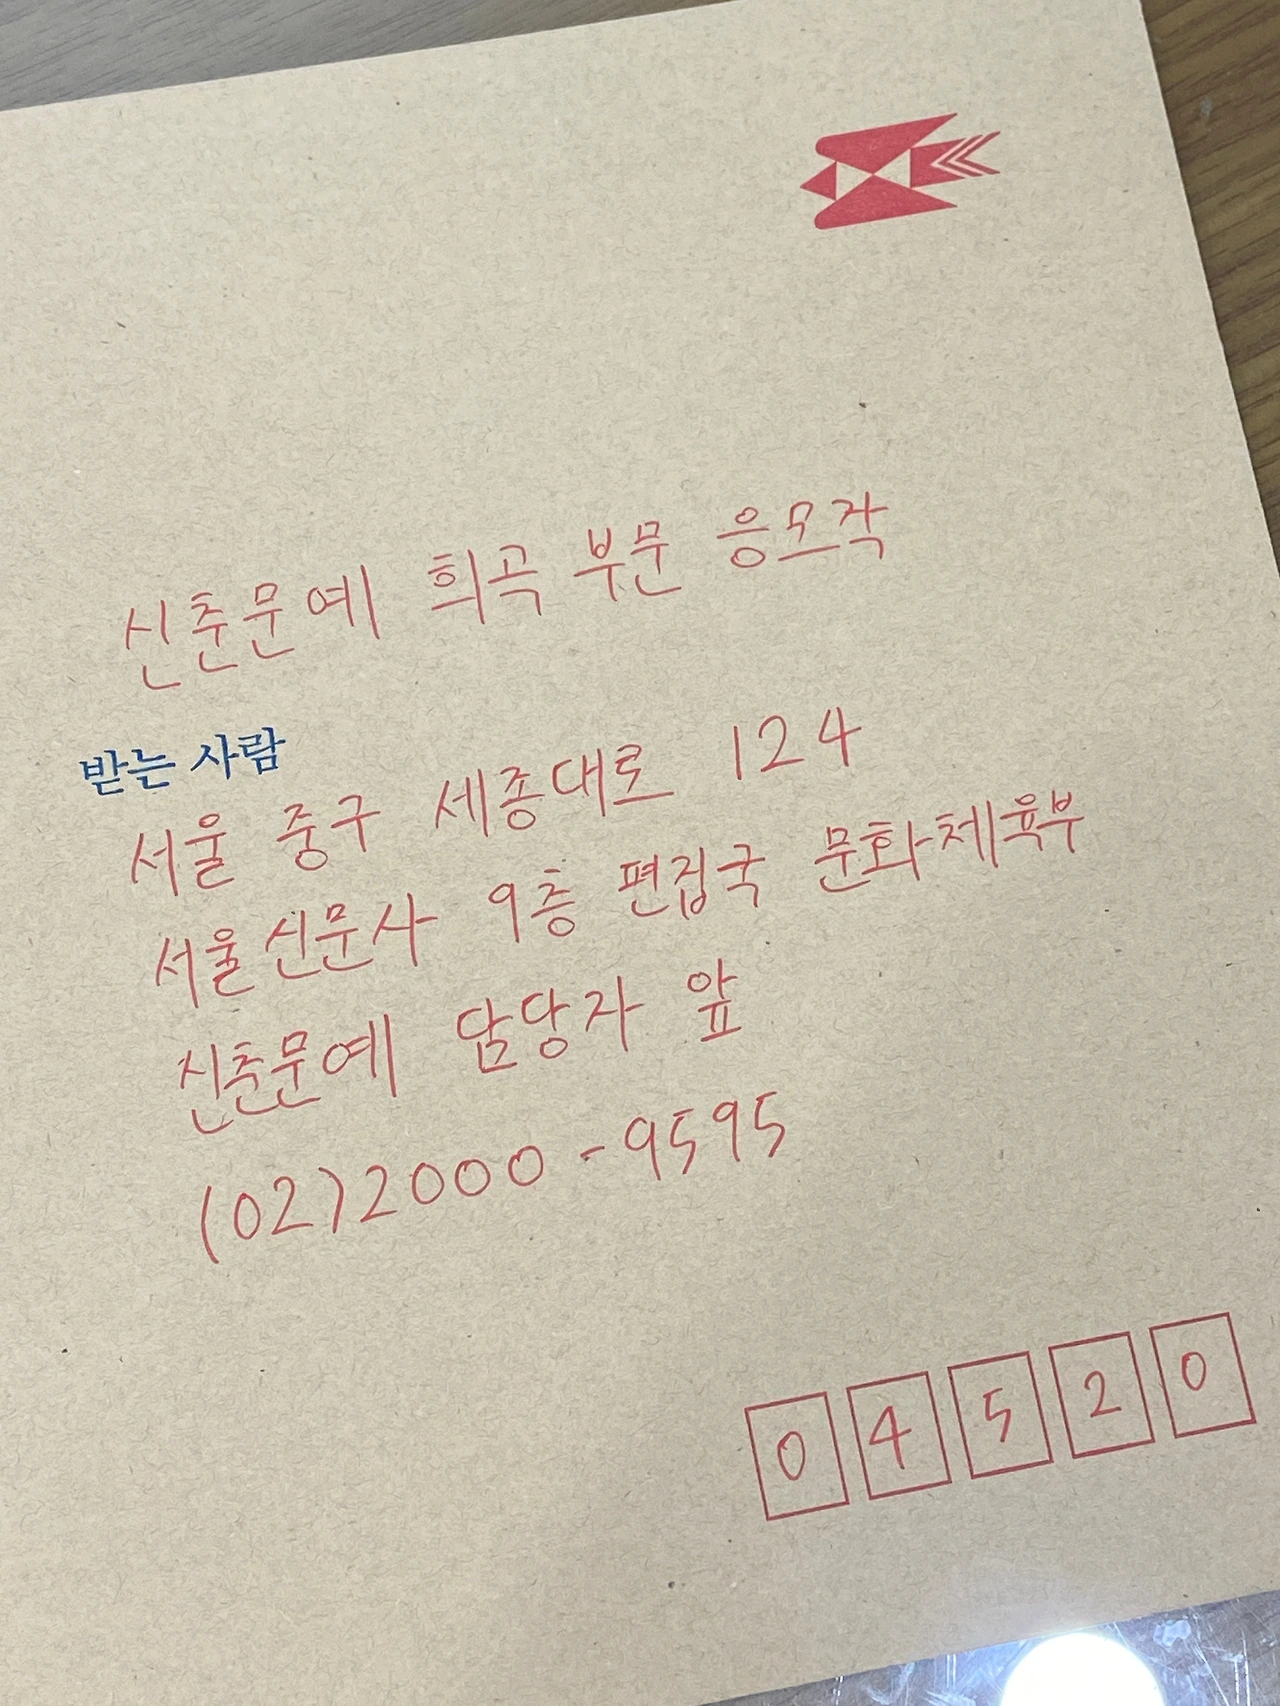 신춘문예 희곡 부문 응모작
받는 사람
서울 중구 세종대로 124
서울신문사 9층 편집국 문화체육부
신춘문예 담당자 앞
(02)2000-9595
04520